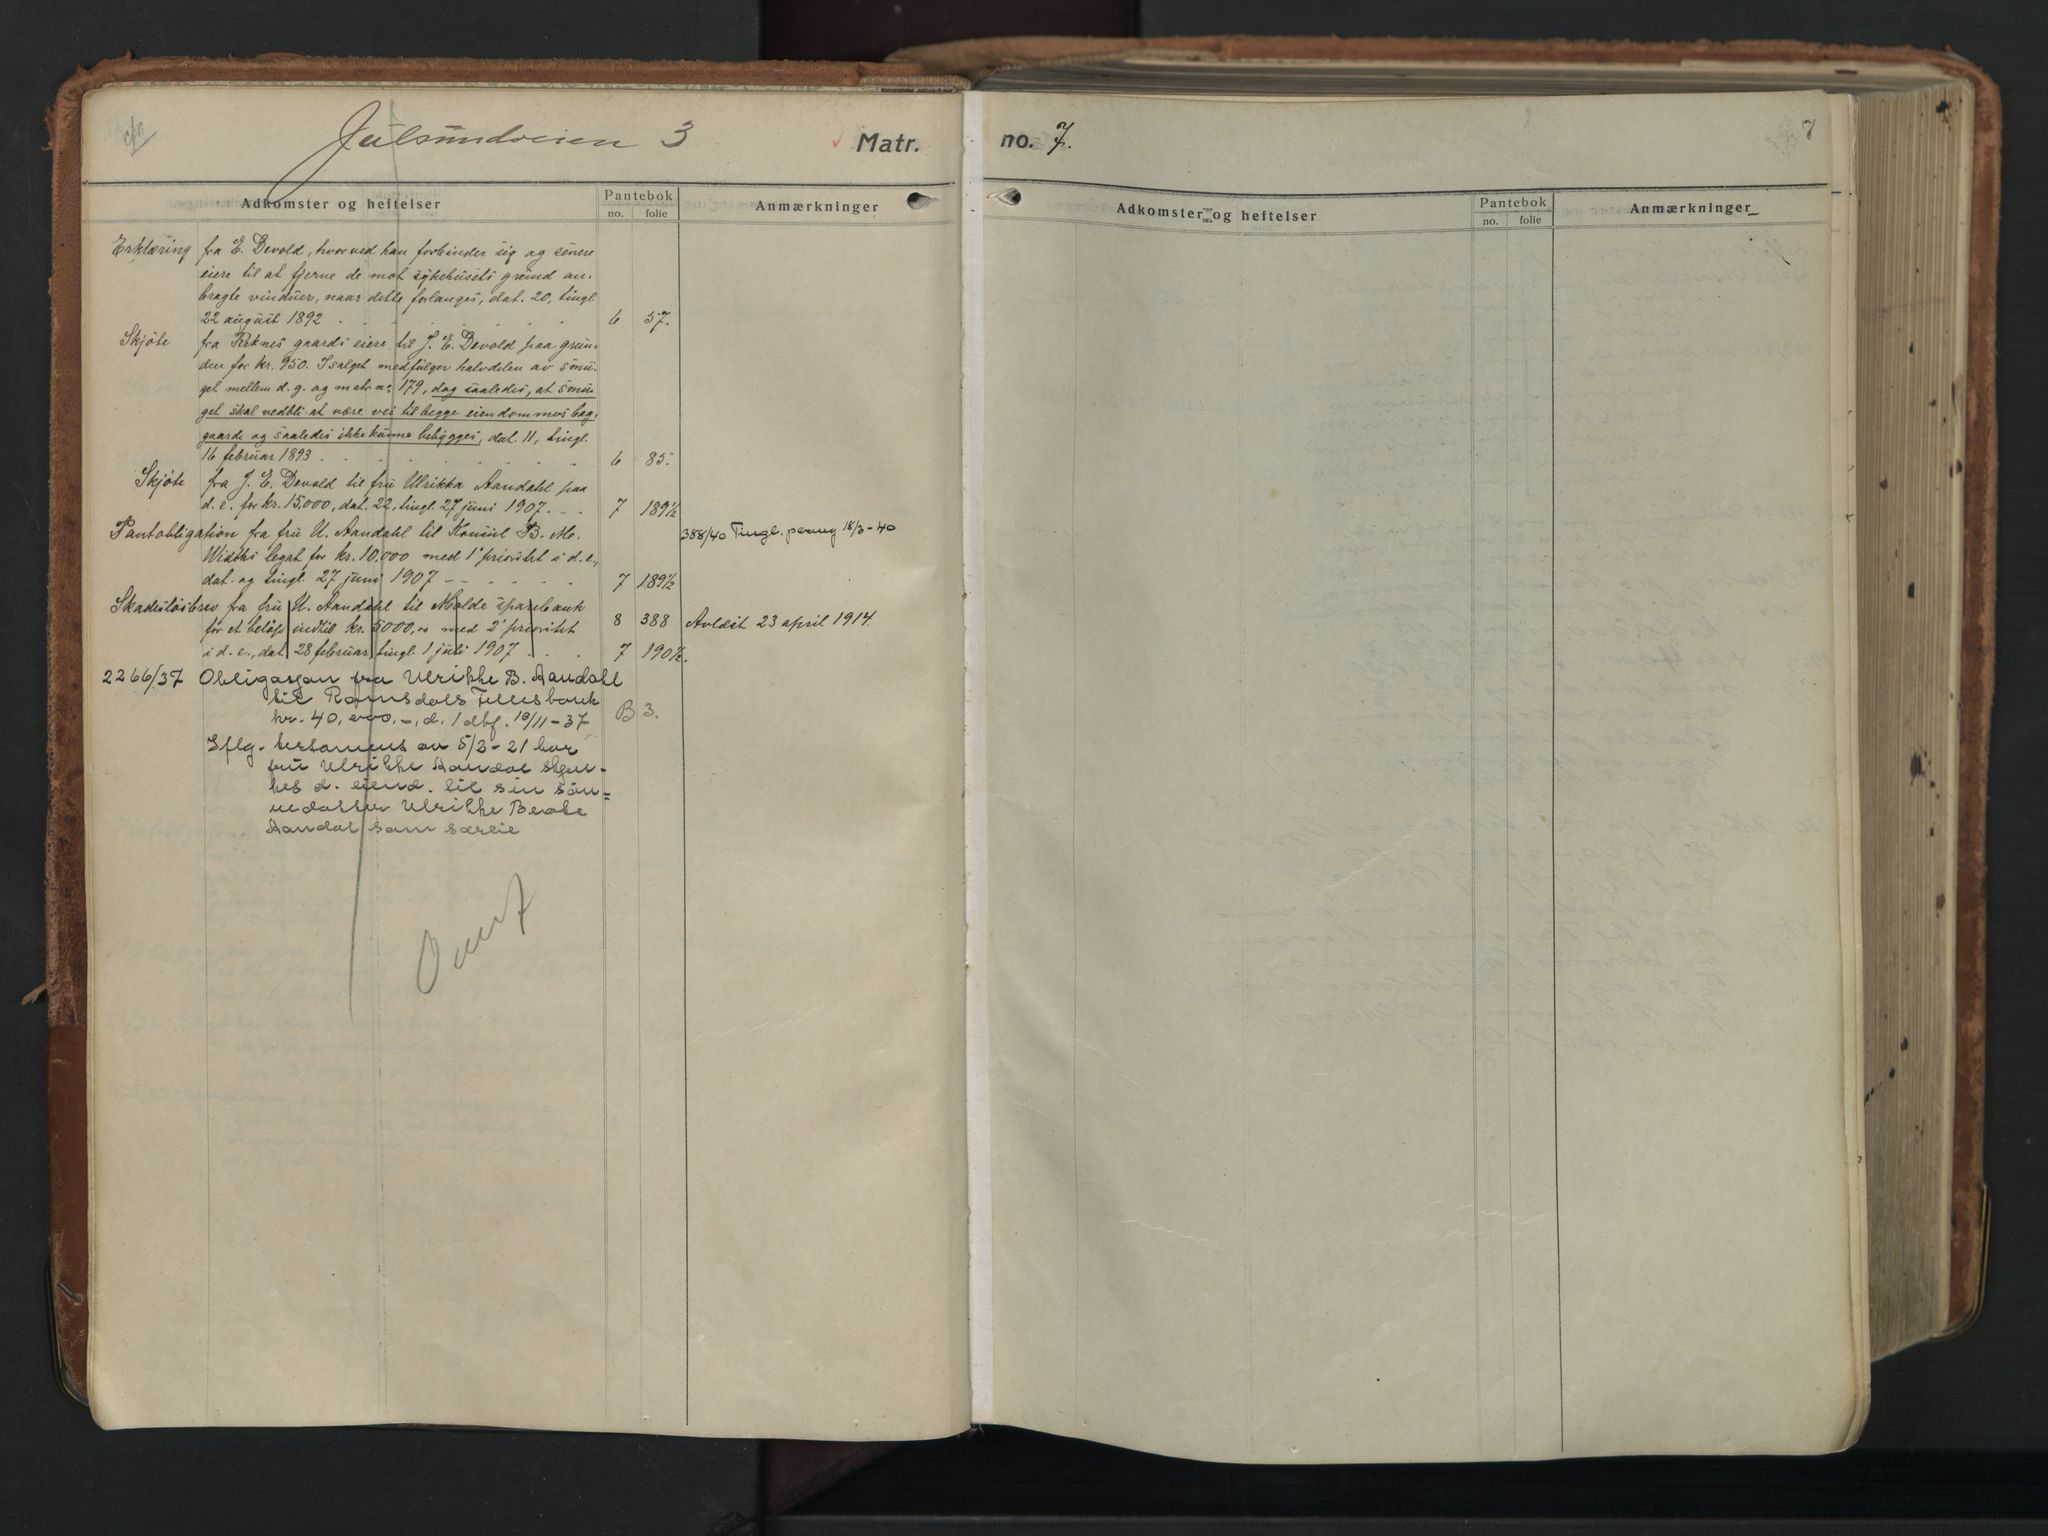 Julsundveien 3 Matr. no. 7. 7
Adkomster og heftelser Pantebok no. folie Anmærkninger
Adkomster og heftelser Pantebok no. folie Anmærkninger
Erklæring fra E. Devold, hvorved han forbinder sig og senere
eiere til at fjerne de mot sykehusets grund an-
bragte vinduer, naar dette forlanges, dat. 20, tingl.
22 august 1892 . . . . . . 6 57.
Skjøte fra Reknes gaards eiere til J. E. Devold paa grun-
den for kr. 950. I salget medfølger halvdelen av smu-
get mellem d. g. og matr. no. 179, dog saaledes, at smu-
get skal vedbli at være vei til begge eiendommes bag-
gaarde og saaledes ikke kunne bebygges, dat. 11, tingl.
16 februar 1893 . . . . . . 6 85.
Skjøte fra J. E. Devold til fru Ulrikka Aandahl paa
d. e. for kr. 15.000, dat. 22, tingl. 27 juni 1907 . . . 7 189½
Pantobligation fra fru U. Aandahl til Konsul B. M.
Widths legat for kr. 10.000 med 1' prioritet i d. e.,
dat. og tingl. 27 juni 1907 - - - - - 7 189½
388/40 Tingl. paany 18/3-40
Skadesløsbrev fra fru U. Aandahl til Molde sparebank
for et beløp indtil kr. 5000,00 med 2' prioritet 8 388 Avlæst 23 april 1914.
i d. e., dat. 28 februar, tingl. 1 juli 1907 . . . 7 190½.
2266/37 Obligasjon fra Ulrikke B. Aandahl
til Romsdals Fellesbank
kr. 40,000,-, d. 1 dbf. 10/11-37 B 3.
Iflg. testament av 5/2-21 har
fru Ulrikke Aandal skjen-
kes d. eiend. til sin sön-
nedatter Ulrikke Beate
Aandal som særeie